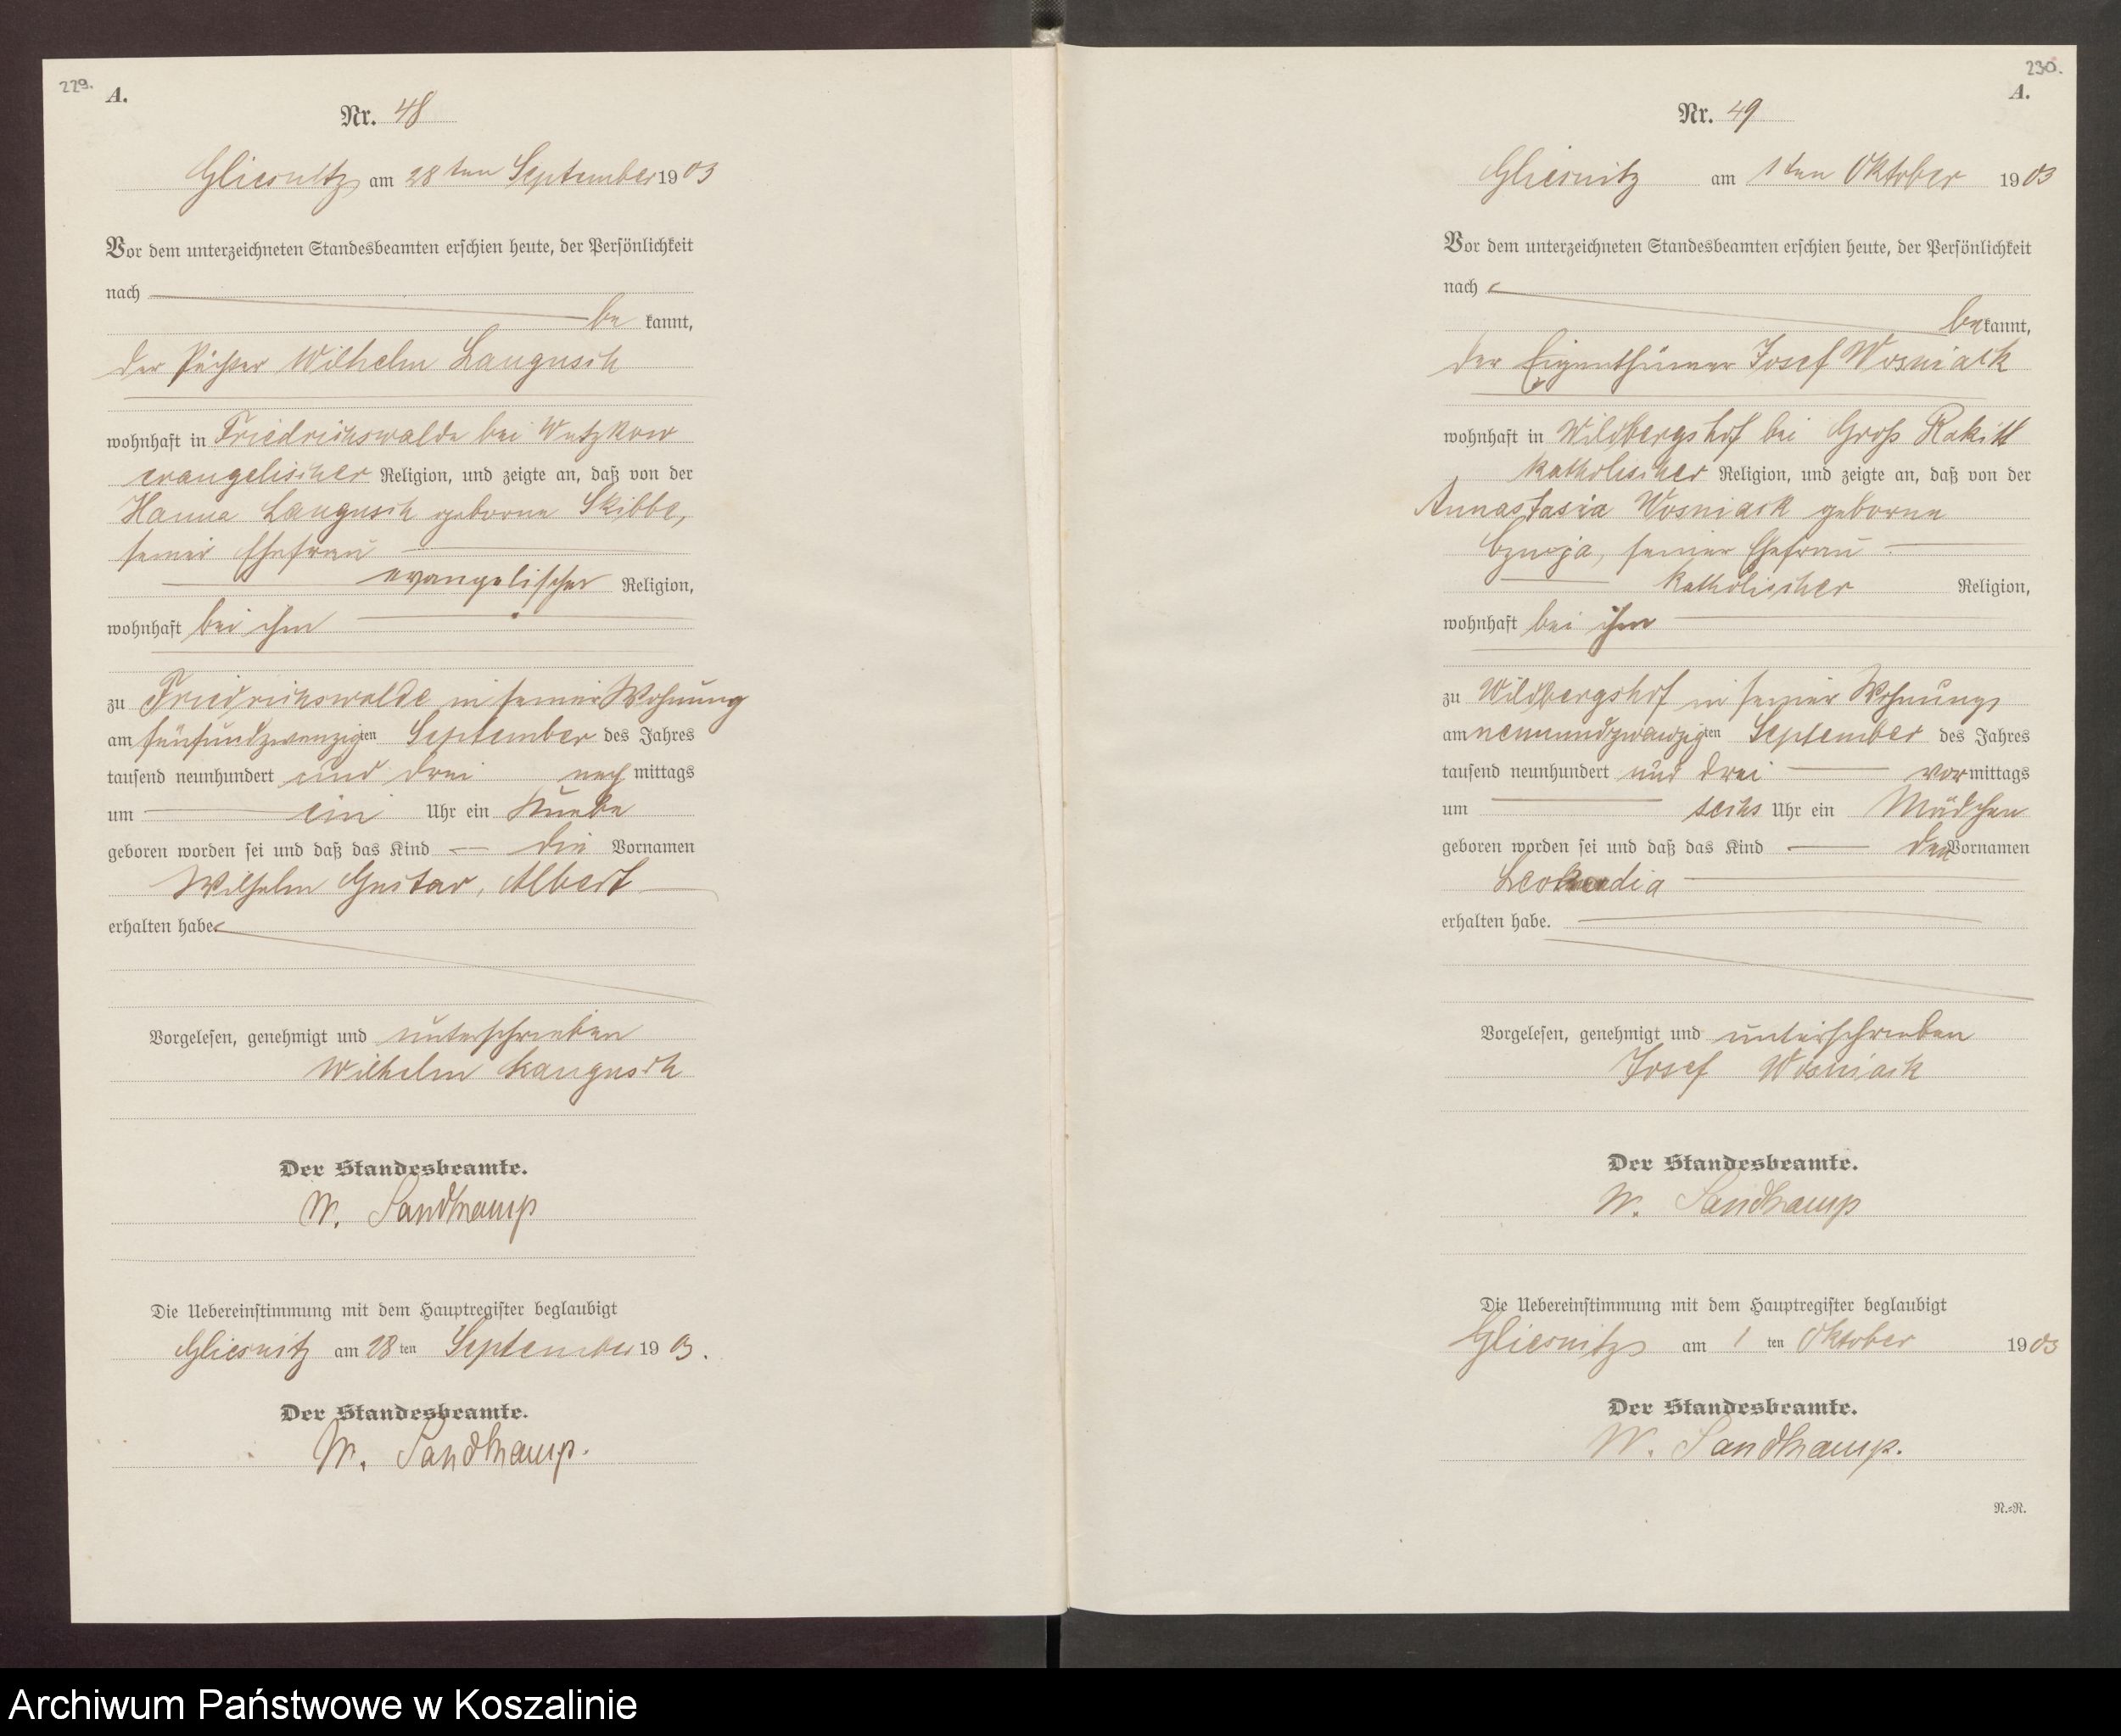 229.
A.
Nr. 48
Gliesnitz am 28ten September 1903
Vor dem unterzeichneten Standesbeamten erschien heute, der Persönlichkeit
nach
be kannt,
der Pächter Wilhelm Langusch
wohnhaft in Friedrichswalde bei Wutzkow
evangelischer Religion, und zeigte an, daß von der
Hanna Langusch geborne Skibbe,
seiner Ehefrau
evangelischer Religion,
wohnhaft bei ihm
zu Friedrichswalde in seiner Wohnung
am fünfundzwanzigten September des Jahres
tausend neunhundert und drei nachmittags
um ein Uhr ein Knabe
geboren worden sei und daß das Kind die Vornamen
Wilhelm Gustav, Albert
erhalten habe.
Vorgelesen, genehmigt und unterschrieben
Wilhelm Langusch
Der Standesbeamte.
W. Sandkamp
Die Uebereinstimmung mit dem Hauptregister beglaubigt
Gliesnitz am 28ten September 1903.
Der Standesbeamte.
W. Sandkamp.
230.
A.
Nr. 49
Gliesnitz am 1ten Oktober 1903
Vor dem unterzeichneten Standesbeamten erschien heute, der Persönlichkeit
nach
bekannt,
der Eigenthümer Josef Wosniack
wohnhaft in Wildbergshof bei Groß Rakitt
katholischer Religion, und zeigte an, daß von der
Annastasia Wosniack geborne
seiner Ehefrau
katholischer Religion,
wohnhaft bei ihm
zu Wildbergshof in seiner Wohnung
am neunundzwanzigten September des Jahres
tausend neunhundert und drei vormittags
um sechs Uhr ein Mädchen
geboren worden sei und daß das Kind den Vornamen
Leokadia
erhalten habe.
Vorgelesen, genehmigt und unterschrieben
Josef Wosniack
Der Standesbeamte.
W. Sandkamp
Die Uebereinstimmung mit dem Hauptregister beglaubigt
Gliesnitz am 1 ten Oktober 1903
Der Standesbeamte.
W. Sandkamp.
N.=N.
Archiwum Państwowe w Koszalinie